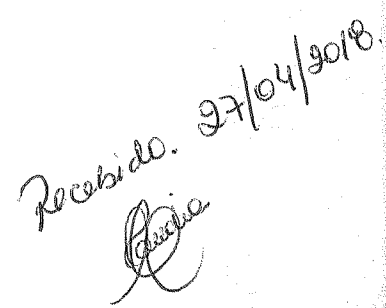 Recebido. 27/04/2018.